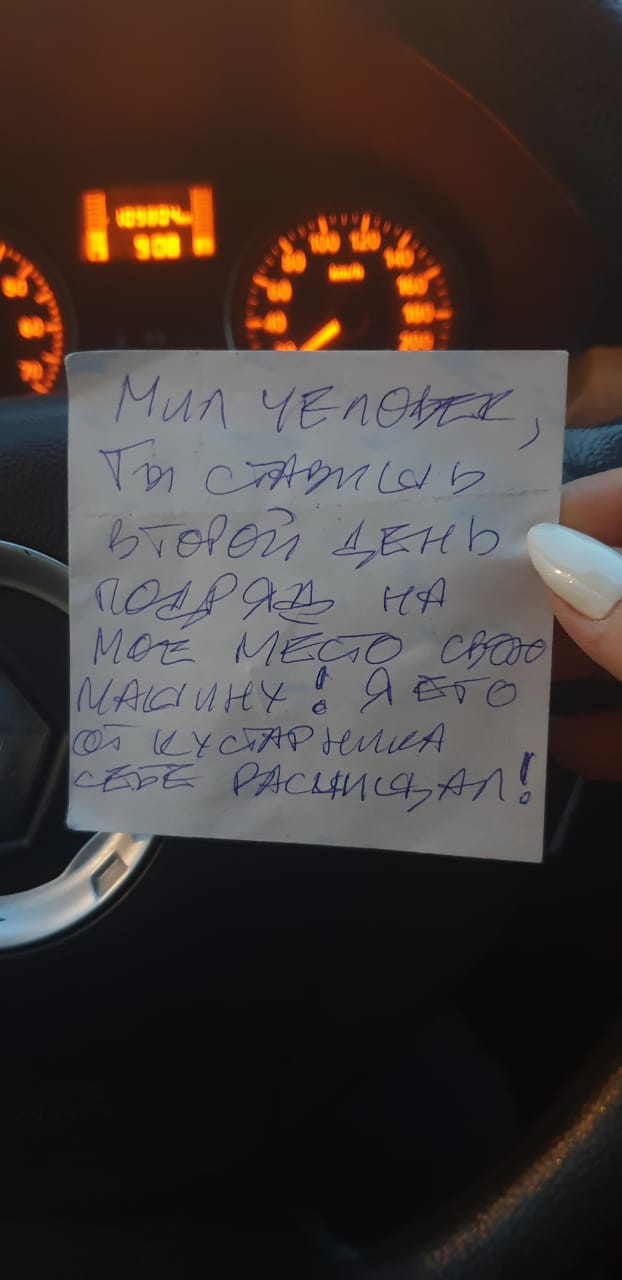 109804 km
9:08
60
80
100
120
140
160
180
200
40
km/h
60
70
Мил человек,
Ты ставишь
второй день
подряд на
мое место свою
машину! Я его
от кустарника
себе расчищал!